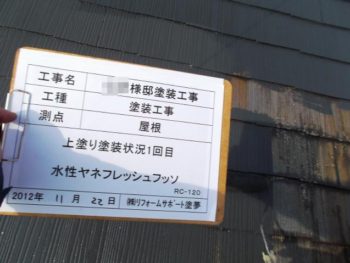 工事名 様邸塗装工事
工種 塗装工事
測点 屋根
上塗り塗装状況1回目
水性ヤネフレッシュフッソ
RC-120
2012年 11月 22日 ㈱リフォームサポート塗夢